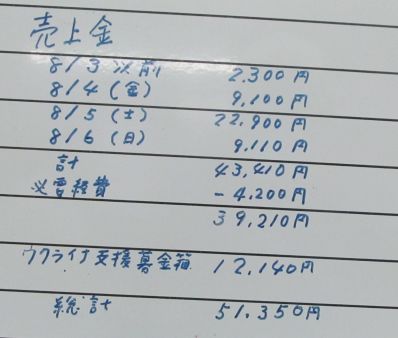 売上金
8/3以前 2.300円
8/4(金) 9,100円
8/5(土) 22,900円
8/6(日) 9.110円
計 43,410円
必要経費 -4.200円
39,210円
ウクライナ支援募金箱 12,140円
総計 51.350円